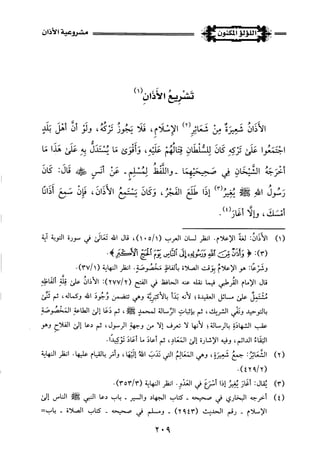 اللؤلؤ المكنون
مشروعية الأذان
تشريع الأذان(١)
الأذان شعيرة من شعائر(٢) الإسلام، فلا يجوز تركه، ولو أن أهل بلد
اجتمعوا على تركه كان للسلطان قتالهم عليه، وأقوى ما يستدل به على هذا ما
أخرجه الشيخان في صحيحهما -واللفظ لمسلم- عن أنس ﷺ قال: كان
رسول الله ﷺ يغير(٣) إذا طلع الفجر، وكان يستمع الأذان، فإن سمع أذانا
أمسك، وإلا أغار(٤).
(١) الأذان: لغة الإعلام. انظر لسان العرب (١٠٥/١)، قال الله تعالى في سورة التوبة آية
(٣): ﴿وأذان من الله ورسوله إلى الناس يوم الحج الأكبر﴾.
وشرعا: هو الإعلام بوقت الصلاة بألفاظ مخصوصة. انظر النهاية (٣٧/١).
قال الإمام القرطبي فيما نقله عنه الحافظ في الفتح (٢٧٧/٢): الأذان على قلة ألفاظه
مشتمل على مسائل العقيدة، لأنه بدأ بالأكبرية وهي تتضمن وجود الله وكماله، ثم ثنى
بالتوحيد ونفي الشريك، ثم بإثبات الرسالة لمحمد ﷺ، ثم دعا إلى الطاعة المخصوصة
عقب الشهادة بالرسالة؛ لأنها لا تعرف إلا من وجهة الرسول، ثم دعا إلى الفلاح وهو
البقاء الدائم، وفيه الإشارة إلى المعاد، ثم أعاد ما أعاد توكيدا.
(٢) الشعائر: جمع شعيرة، وهي المعالم التي ندب الله إليها، وأمر بالقيام عليها. انظر النهاية
(٤٢٩/٢).
(٣) يقال: أغار يغير إذا أسرع في العدو. انظر النهاية (٣٥٣/٣).
(٤) أخرجه البخاري في صحيحه - كتاب الجهاد والسير - باب دعا النبي ﷺ الناس إلى
الإسلام - رقم الحديث (٢٩٤٣) - ومسلم في صحيحه - كتاب الصلاة - باب=
٢٠٩